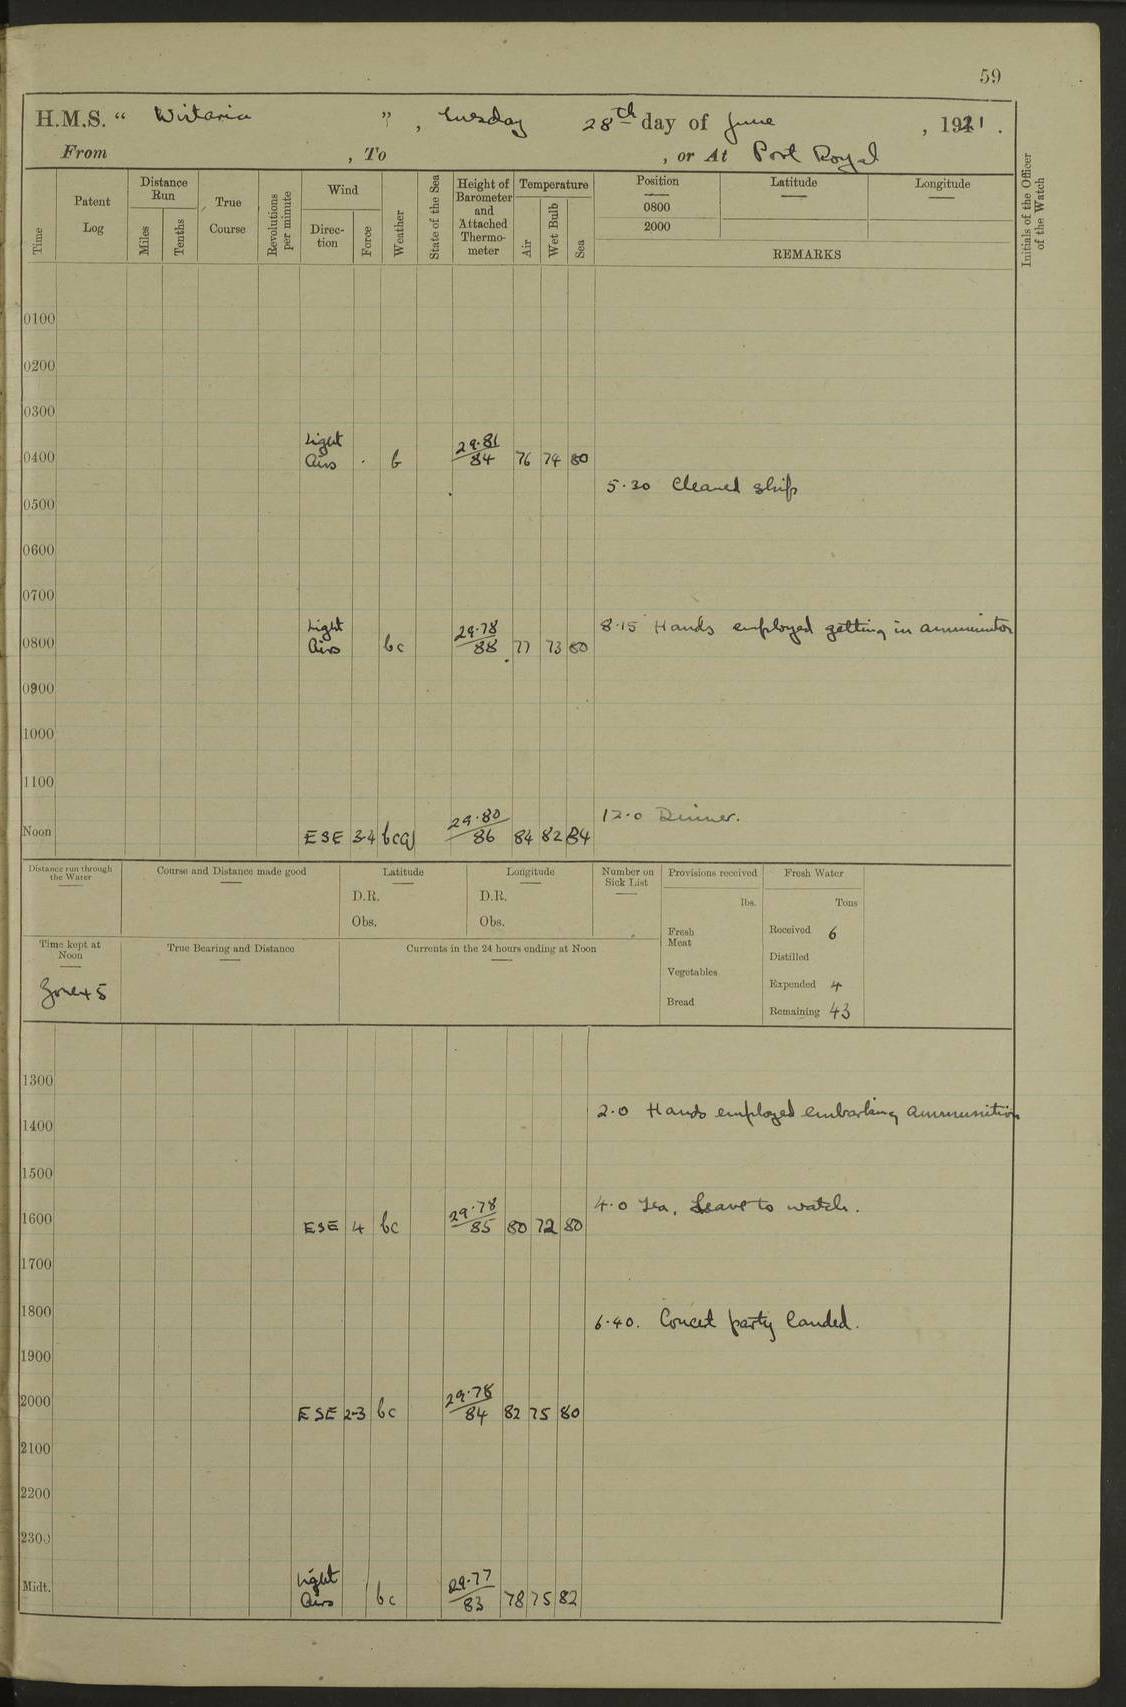 59
H.M.S. " Wistaria ", Tuesday 28th day of June, 1921.
From , To , or At Port Royal
Time
Patent Log
Distance Run
Miles
Tenths
True Course
Revolutions per minute
Wind
Direction
Force
Weather
State of the Sea
Height of Barometer and Attached Thermometer
Temperature
Air
Wet Bulb
Sea
Position
0800
2000
Latitude
Longitude
REMARKS
Initials of the Officer of the Watch
0100
0200
0300
0400 Light Airs . b 29.81/84 76 74 80
5.30 Cleaned ship
0500
0600
0700
8.15 Hands employed getting in ammunition
0800 Light Airs bc 29.78/88 77 73 80
0900
1000
1100
12.0 Dinner.
Noon ESE 3-4 bcq 29.80/86 84 82 84
Distance run through the Water
Course and Distance made good
Latitude
D.R.
Obs.
Longitude
D.R.
Obs.
Number on Sick List
Provisions received
lbs.
Fresh Meat
Vegetables
Bread
Fresh Water
Tons
Received 6
Distilled
Expended 4
Remaining 43
Time kept at Noon
Zone + 5
True Bearing and Distance
Currents in the 24 hours ending at Noon
1300
2.0 Hands employed embarking ammunition
1400
1500
4.0 Tea. Leave to watch.
1600 ESE 4 bc 29.78/85 80 72 80
1700
1800
6.40. Concert party landed.
1900
2000 ESE 2-3 bc 29.78/84 82 75 80
2100
2200
2300
Midt. Light Airs bc 29.77/83 78 75 82